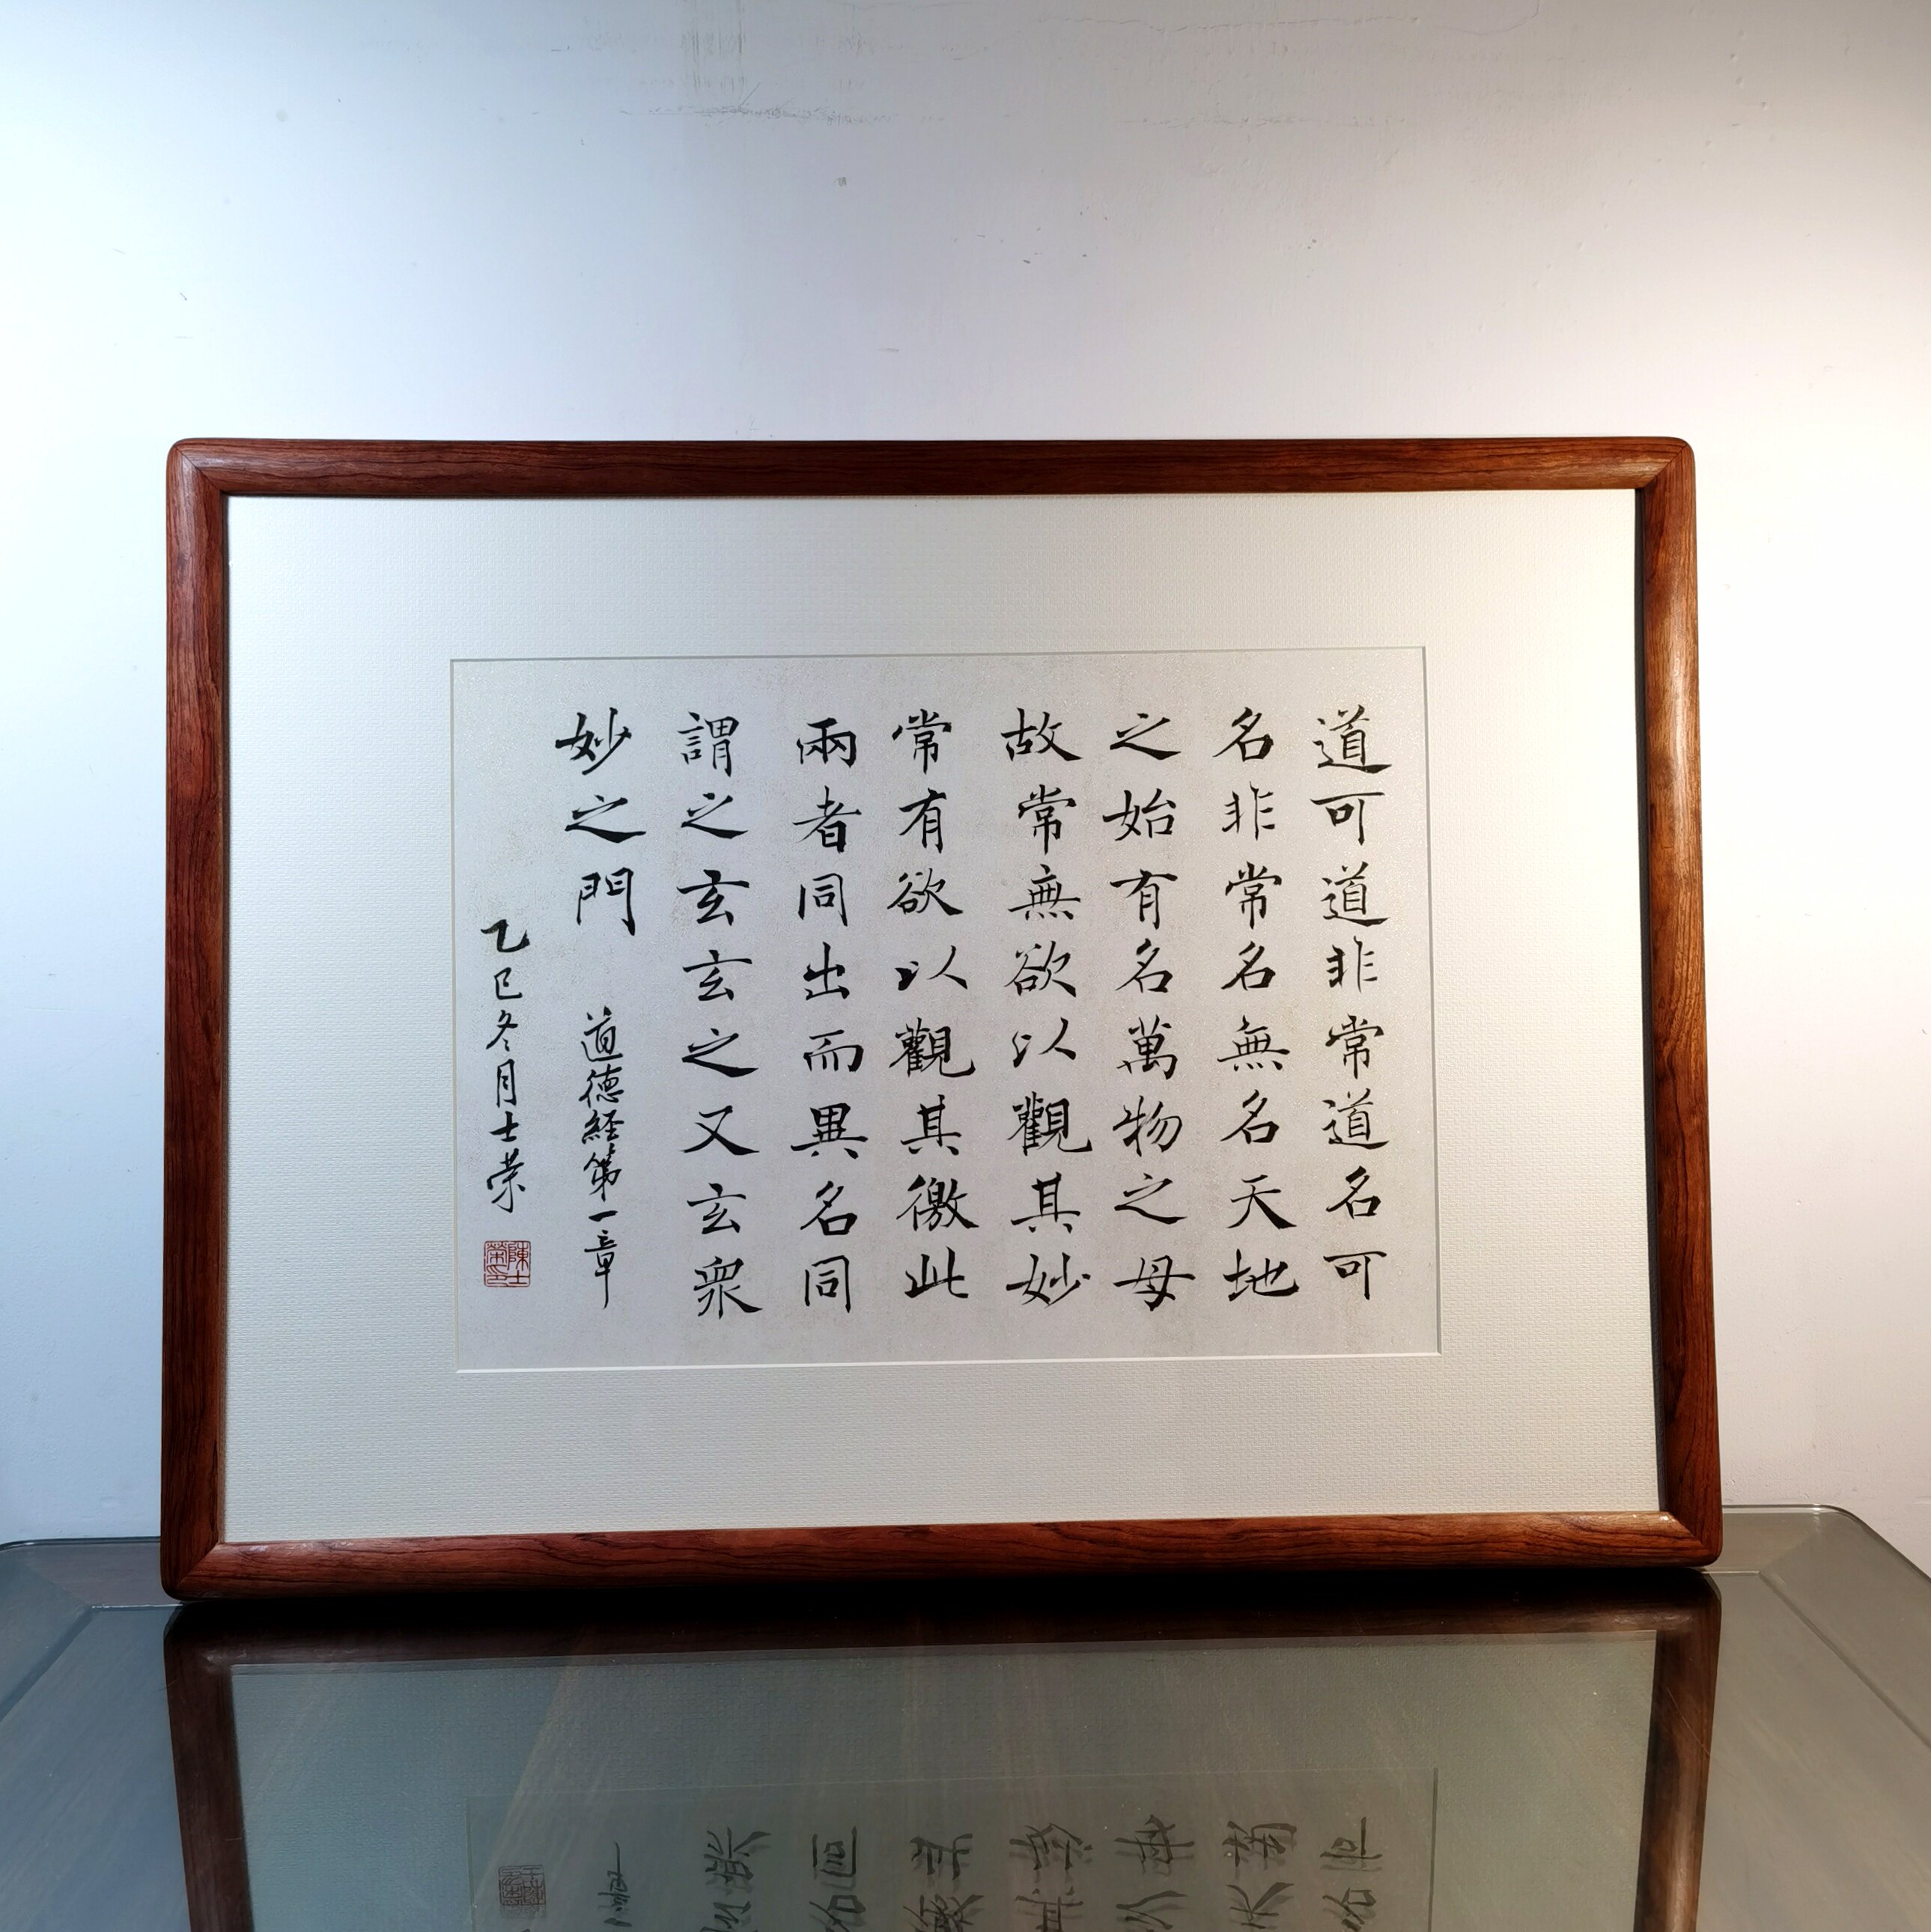 道可道非常道名可
名非常名無名天地
之始有名萬物之母
故常無欲以觀其妙
常有欲以觀其徼此
兩者同出而異名同
謂之玄玄之又玄衆
妙之門 道德経第一章
乙巳冬月士荣
陳士榮印